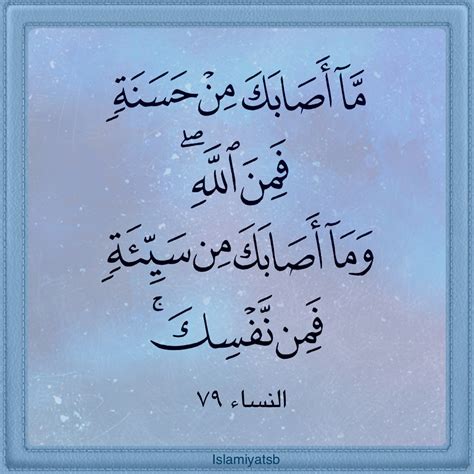 مَّآ أَصَابَكَ مِنْ حَسَنَةٍ
فَمِنَ ٱللَّهِ ۖ
وَمَآ أَصَابَكَ مِن سَيِّئَةٍ
فَمِن نَّفْسِكَ ۚ
النساء ٧٩
Islamiyatsb